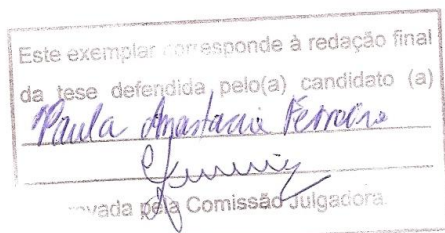 Este exemplar corresponde à redação final
da tese defendida pelo(a) candidato (a)
Paula Anastacia Ferreira
pela Comissão Julgadora.